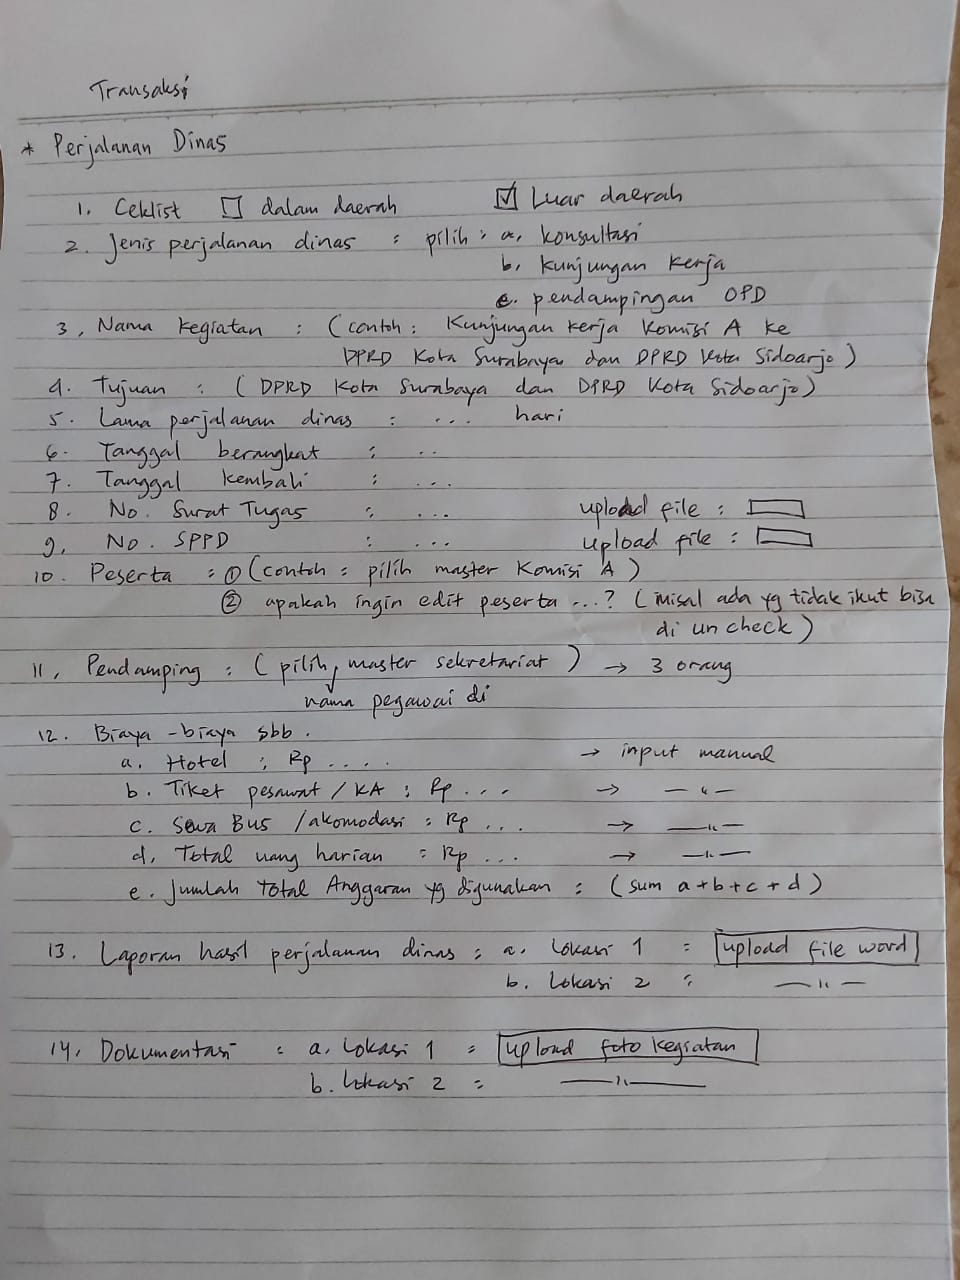 Transaksi
* Perjalanan Dinas
1. Ceklist ☐ dalam daerah ☑ Luar daerah
2. Jenis perjalanan dinas : pilih : a. konsultasi
b. kunjungan kerja
c. pendampingan OPD
3. Nama kegiatan : (contoh : Kunjungan kerja Komisi A ke
DPRD Kota Surabaya dan DPRD Kota Sidoarjo)
4. Tujuan : (DPRD Kota Surabaya dan DPRD Kota Sidoarjo)
5. Lama perjalanan dinas : ... hari
6. Tanggal berangkat : ..
7. Tanggal kembali : ...
8. No. Surat Tugas : ... upload file :
9. No. SPPD : ... upload file :
10. Peserta : ① (contoh : pilih master Komisi A)
② apakah ingin edit peserta ...? (misal ada yg tidak ikut bisa
di un check)
11. Pendamping : (pilih, master sekretariat) → 3 orang
nama pegawai di
12. Biaya-biaya sbb.
a. Hotel : Rp .... → input manual
b. Tiket pesawat / KA : Rp ... → — " —
c. Sewa Bus / akomodasi : Rp ... → — " —
d. Total uang harian : Rp ... → — " —
e. Jumlah Total Anggaran yg digunakan : (sum a+b+c+d)
13. Laporan hasil perjalanan dinas : a. Lokasi 1 : upload file word
b. Lokasi 2 : — " —
14. Dokumentasi : a. Lokasi 1 : upload foto kegiatan
b. Lokasi 2 : — " —